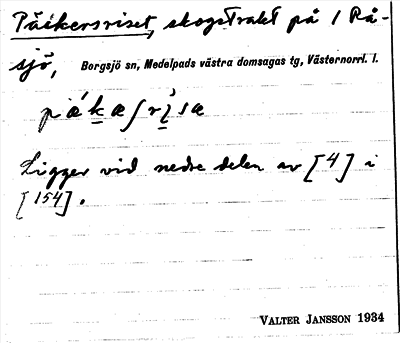 Påikersriset, skogstrakt på 1 Rå-
sjö, Borgsjö sn, Medelpads västra domsagas tg, Västernorrl. l.
Ligger vid nedre delen av [4] i
[154].
VALTER JANSSON 1934